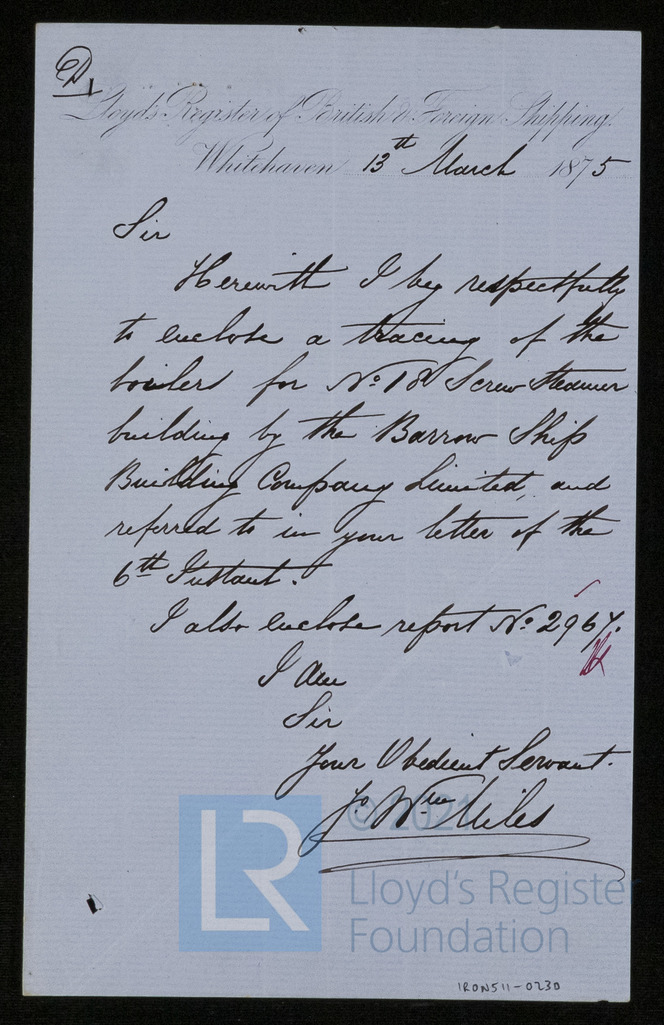 D1
Lloyd's Register of British & Foreign Shipping.
Whitehaven 13th March 1875
Sir
Herewith I beg respectfully
to enclose a tracing of the
boilers for No. 18 Screw Steamer
building by the Barrow Ship
Building Company Limited, and
referred to in your letter of the
6th Instant.
I also enclose report No. 2967.
I am
Sir
Your Obedient Servant.
Jo. Wm Miles
© 2021
LR
Lloyd's Register
Foundation
IRON511-0230